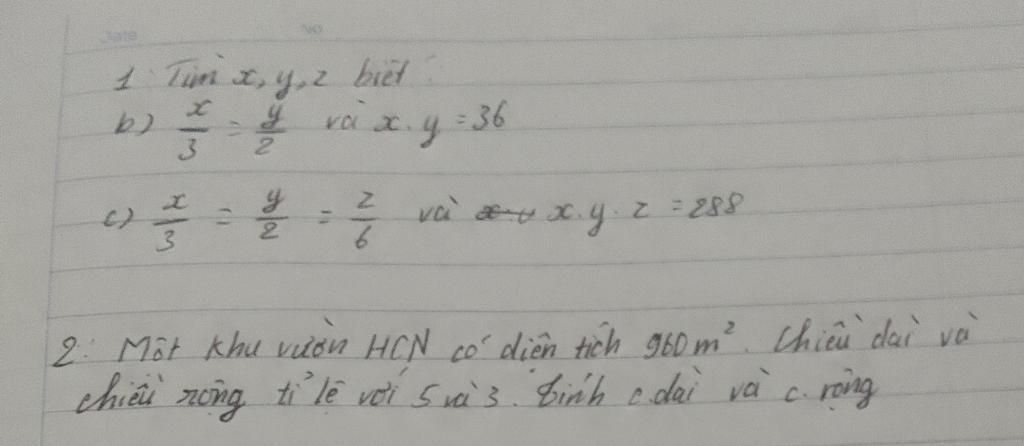 Date No
1: Tìm x, y, z biết:
b) x/3 = y/2 và x.y = 36
c) x/3 = y/2 = z/6 và x.y.z = 288
2: Một khu vườn HCN có diện tích 960m². Chiều dài và
chiều rộng tỉ lệ với 5 và 3. tính c.dài và c.rộng